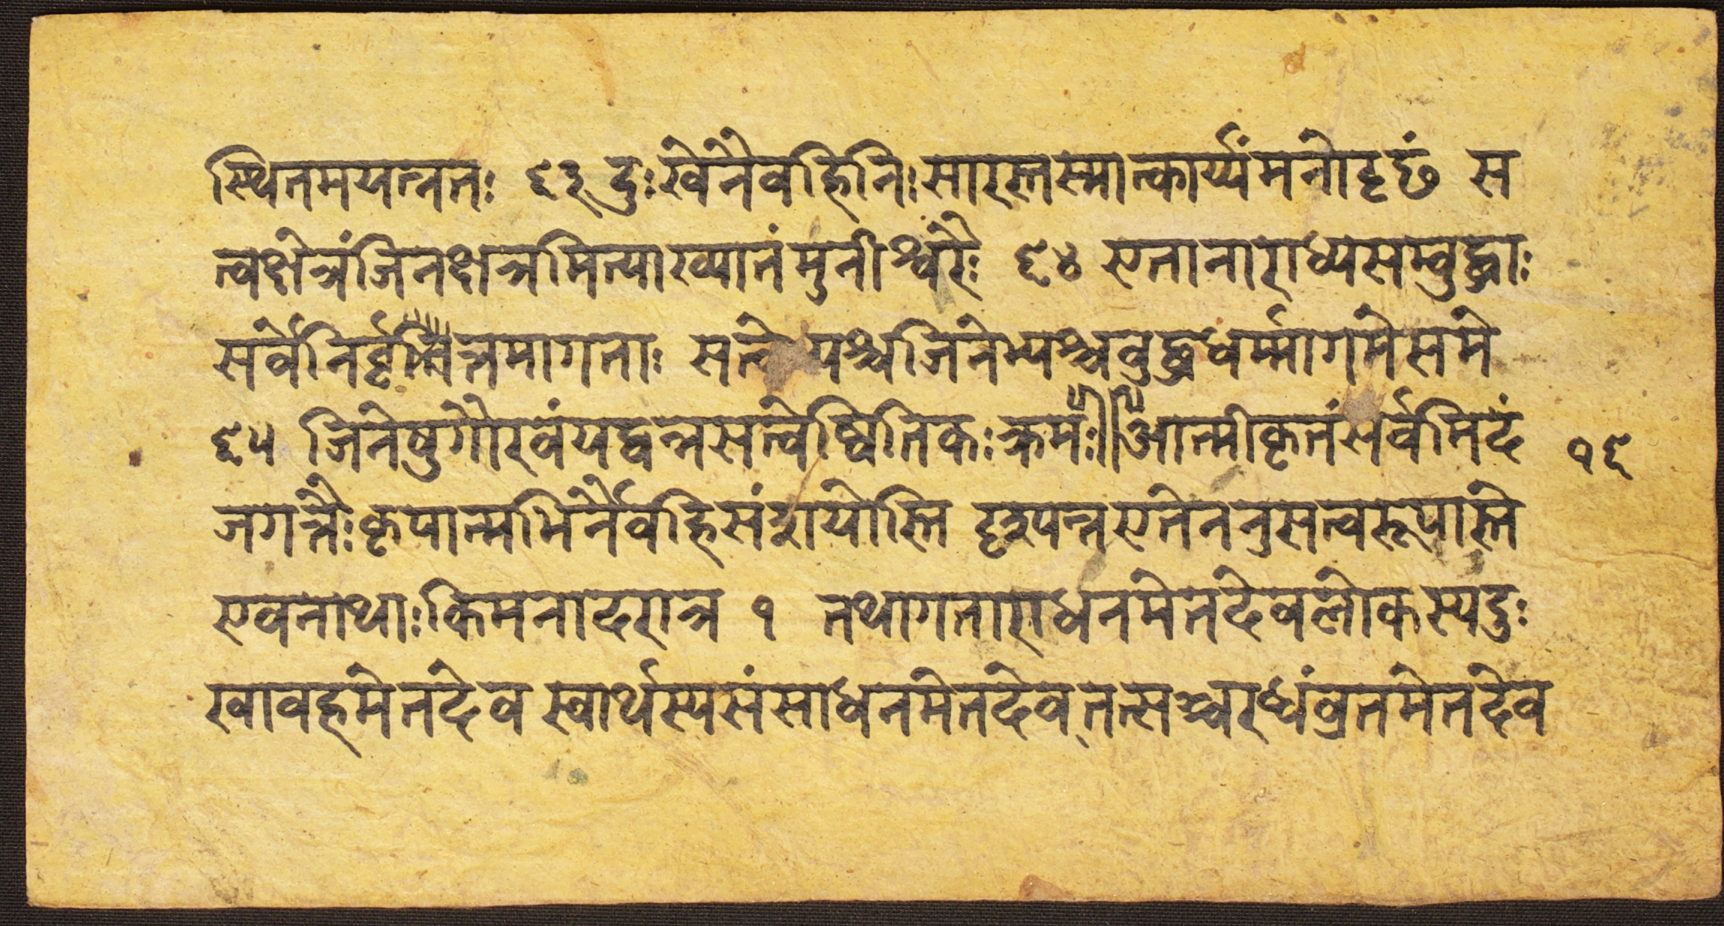 स्थितमयत्नतः ६३ दुःखेनैवहिनिःसारस्तस्मात्कार्य्यंमनोदृढं स
त्वक्षेत्रंजिनक्षत्रमित्याख्यातंमुनीश्वरैः ६४ एतानाराध्यसम्बुद्धाः
सर्वेनिर्वृतिमागताः सत्वेभ्यश्चजिनेभ्यश्चबुद्धधर्म्मागमेसमे
६५ जिनेषुगौरवंयद्वन्नसत्वेष्वितिकःक्रमः॥ आत्मीकृतंसर्वमिदं
जगत्तैःकृपात्मभिर्नैवहिसंशयोस्ति दृश्यन्तएतेननुसत्वरूपास्ते
एवनाथाःकिमनादरात्र १ तथागताराधनमेतदेवलोकस्यदुः
खावहमेतदेव स्वार्थस्यसंसाधनमेतदेव्तत्सञ्चरध्वंव्रतमेतदेव
१६